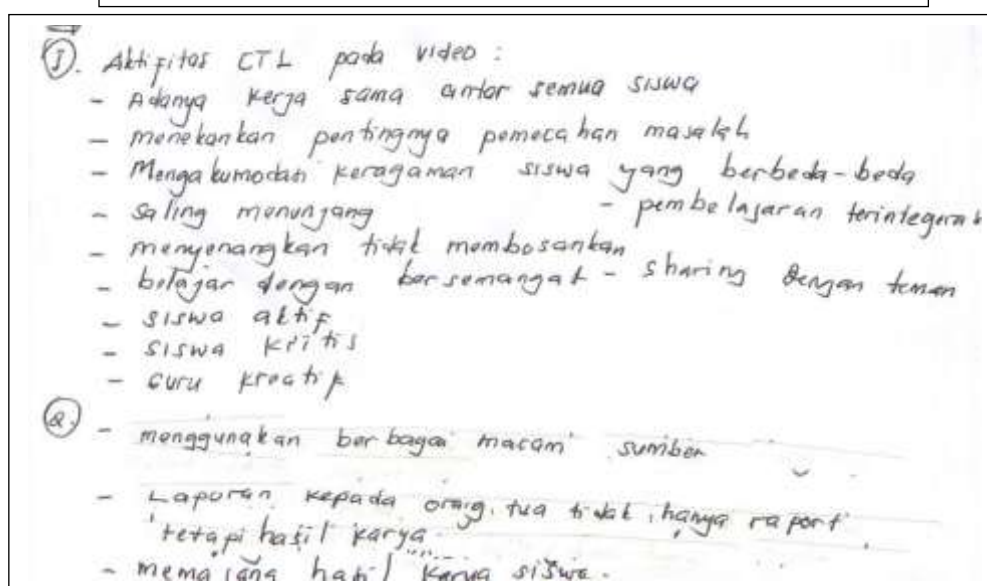 ①. Aktifitas CTL pada video :
- Adanya kerja sama antar semua siswa
- menekankan pentingnya pemecahan masalah
- Mengakumodasi keragaman siswa yang berbeda-beda
- saling menunjang - pembelajaran
- menyenangkan tidak membosankan
- belajar dengan bersemangat - sharing dengan teman
- siswa aktif
- siswa kritis
- Guru kreatif
②. - menggunakan berbagai macam sumber
- Laporan kepada orang tua tidak hanya raport
tetapi hasil karya
- memajang hasil karya siswa.